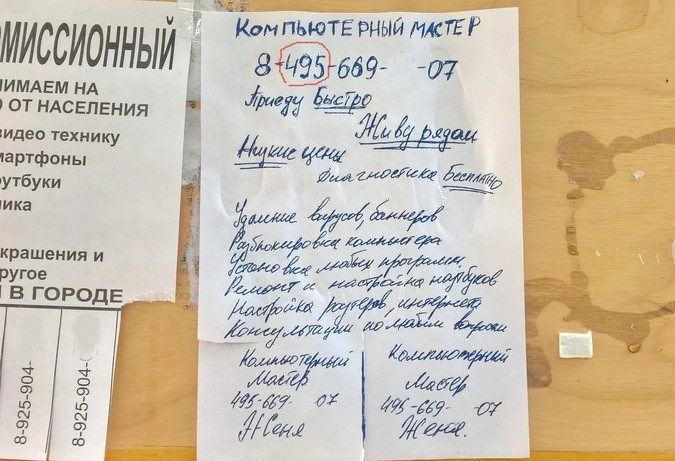 МИССИОННЫЙ
НИМАЕМ НА
О ОТ НАСЕЛЕНИЯ
видео технику
мартфоны
оутбуки
ника
крашения и
ругое
В ГОРОДЕ
8-925-904-
8-925-904-
КОМПЬЮТЕРНЫЙ МАСТЕР
8-495-669- -07
Приеду Быстро
Живу рядом
Низкие цены
Диагностика БЕСПЛАТНО
Удаление вирусов, баннеров
Разблокировка компьютера
Установка любых программ
Ремонт и настройка ноутбуков
Настройка роутеров, интернета
Консультации по любым вопросам
Компьютерный
Мастер
495-669- 07
Женя
Компьютерный
Мастер
495-669- -07
Женя.